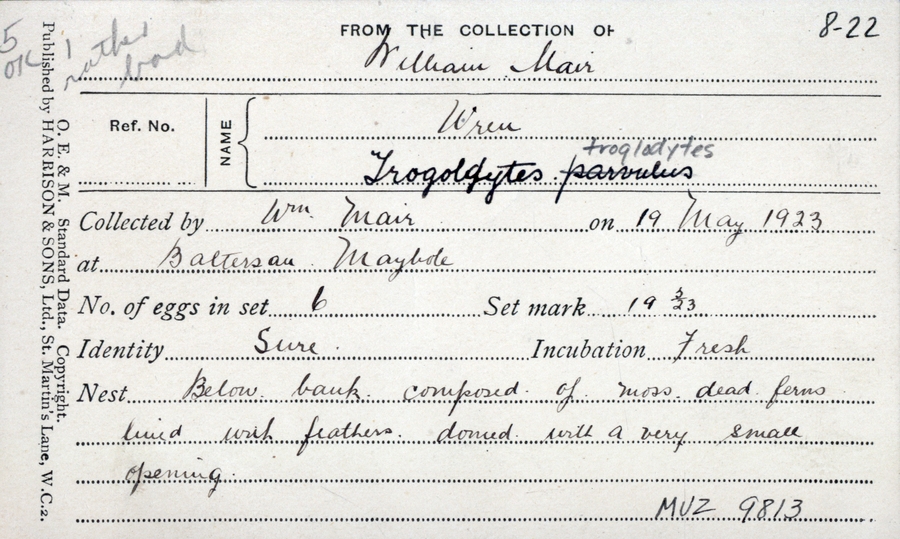 FROM THE COLLECTION OF
8-22
William Mair
5 OK
1 rather bad
Ref. No.
NAME
Wren
troglodytes
Trogoldytes parvulus
Collected by Wm Mair on 19 May 1923
at Baltersan Maybole
No. of eggs in set 6 Set mark 19 3/23
Identity Sure. Incubation Fresh
Nest Below bank composed of moss. dead ferns
lined with feathers. domed with a very small
opening.
MVZ 9813
O. E. & M. Standard Data. Copyright.
Published by HARRISON & SONS, Ltd., St. Martin's Lane, W.C.2.